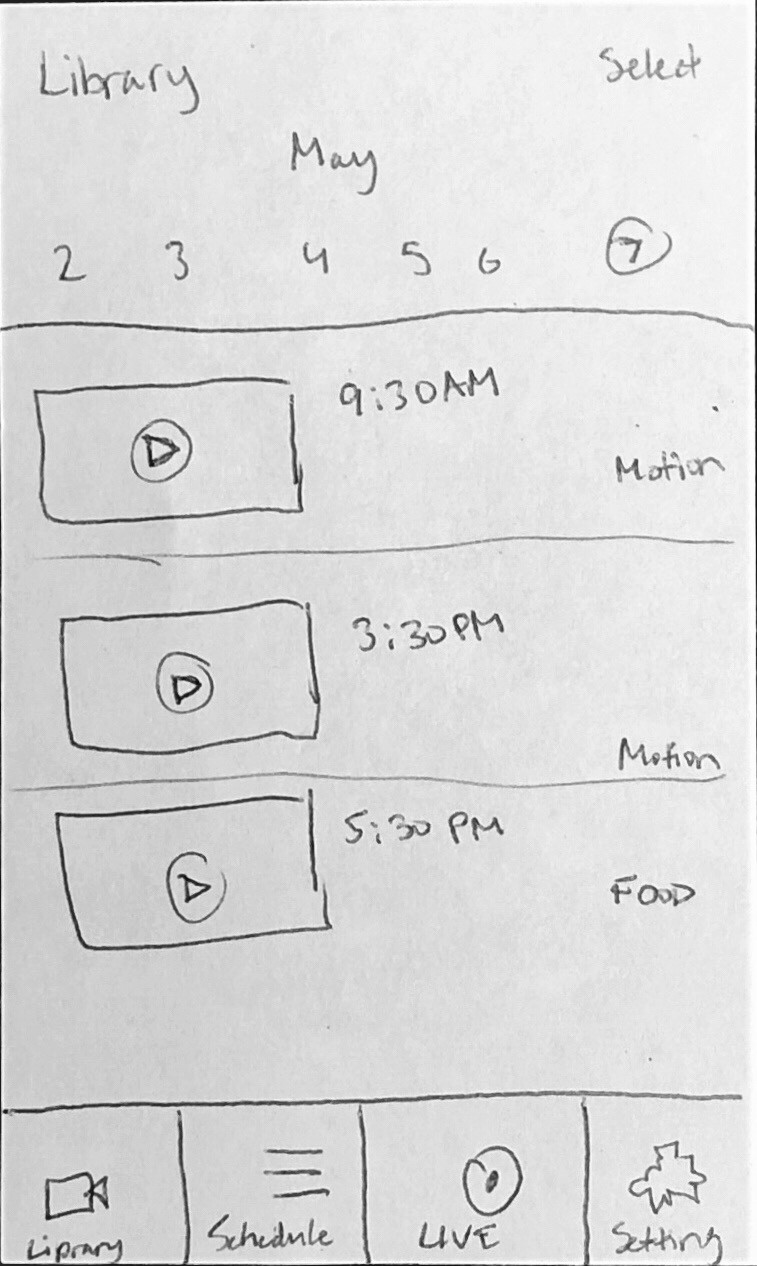 Library Select
May
2 3 4 5 6 7
9:30AM
Motion
3:30PM
Motion
5:30 PM
FOOD
Library Schedule LIVE Setting